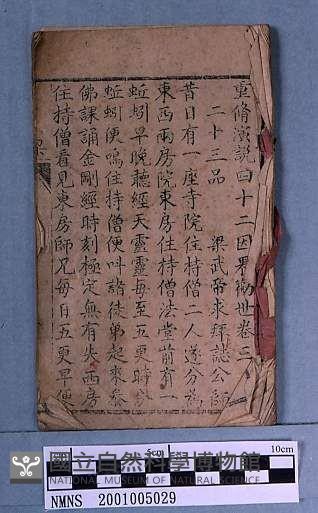 重脩演說四十二因果勸世卷三
二十三品 梁武帝求拜誌公師
昔日有一座寺院住持僧二人遂分為
東西兩房院東房住持僧法堂前有一
蚯蚓早晚聽經天靈靈每至五更時分
蚯蚓便鳴住持僧便呌諸徒弟起來叅
佛課誦金剛經時刻極定無有失西房
住持僧看見東房師兄每日五更早便
5cm
10cm
國立自然科學博物館
NATIONAL MUSEUM OF NATURAL SCIENCE
NMNS 2001005029